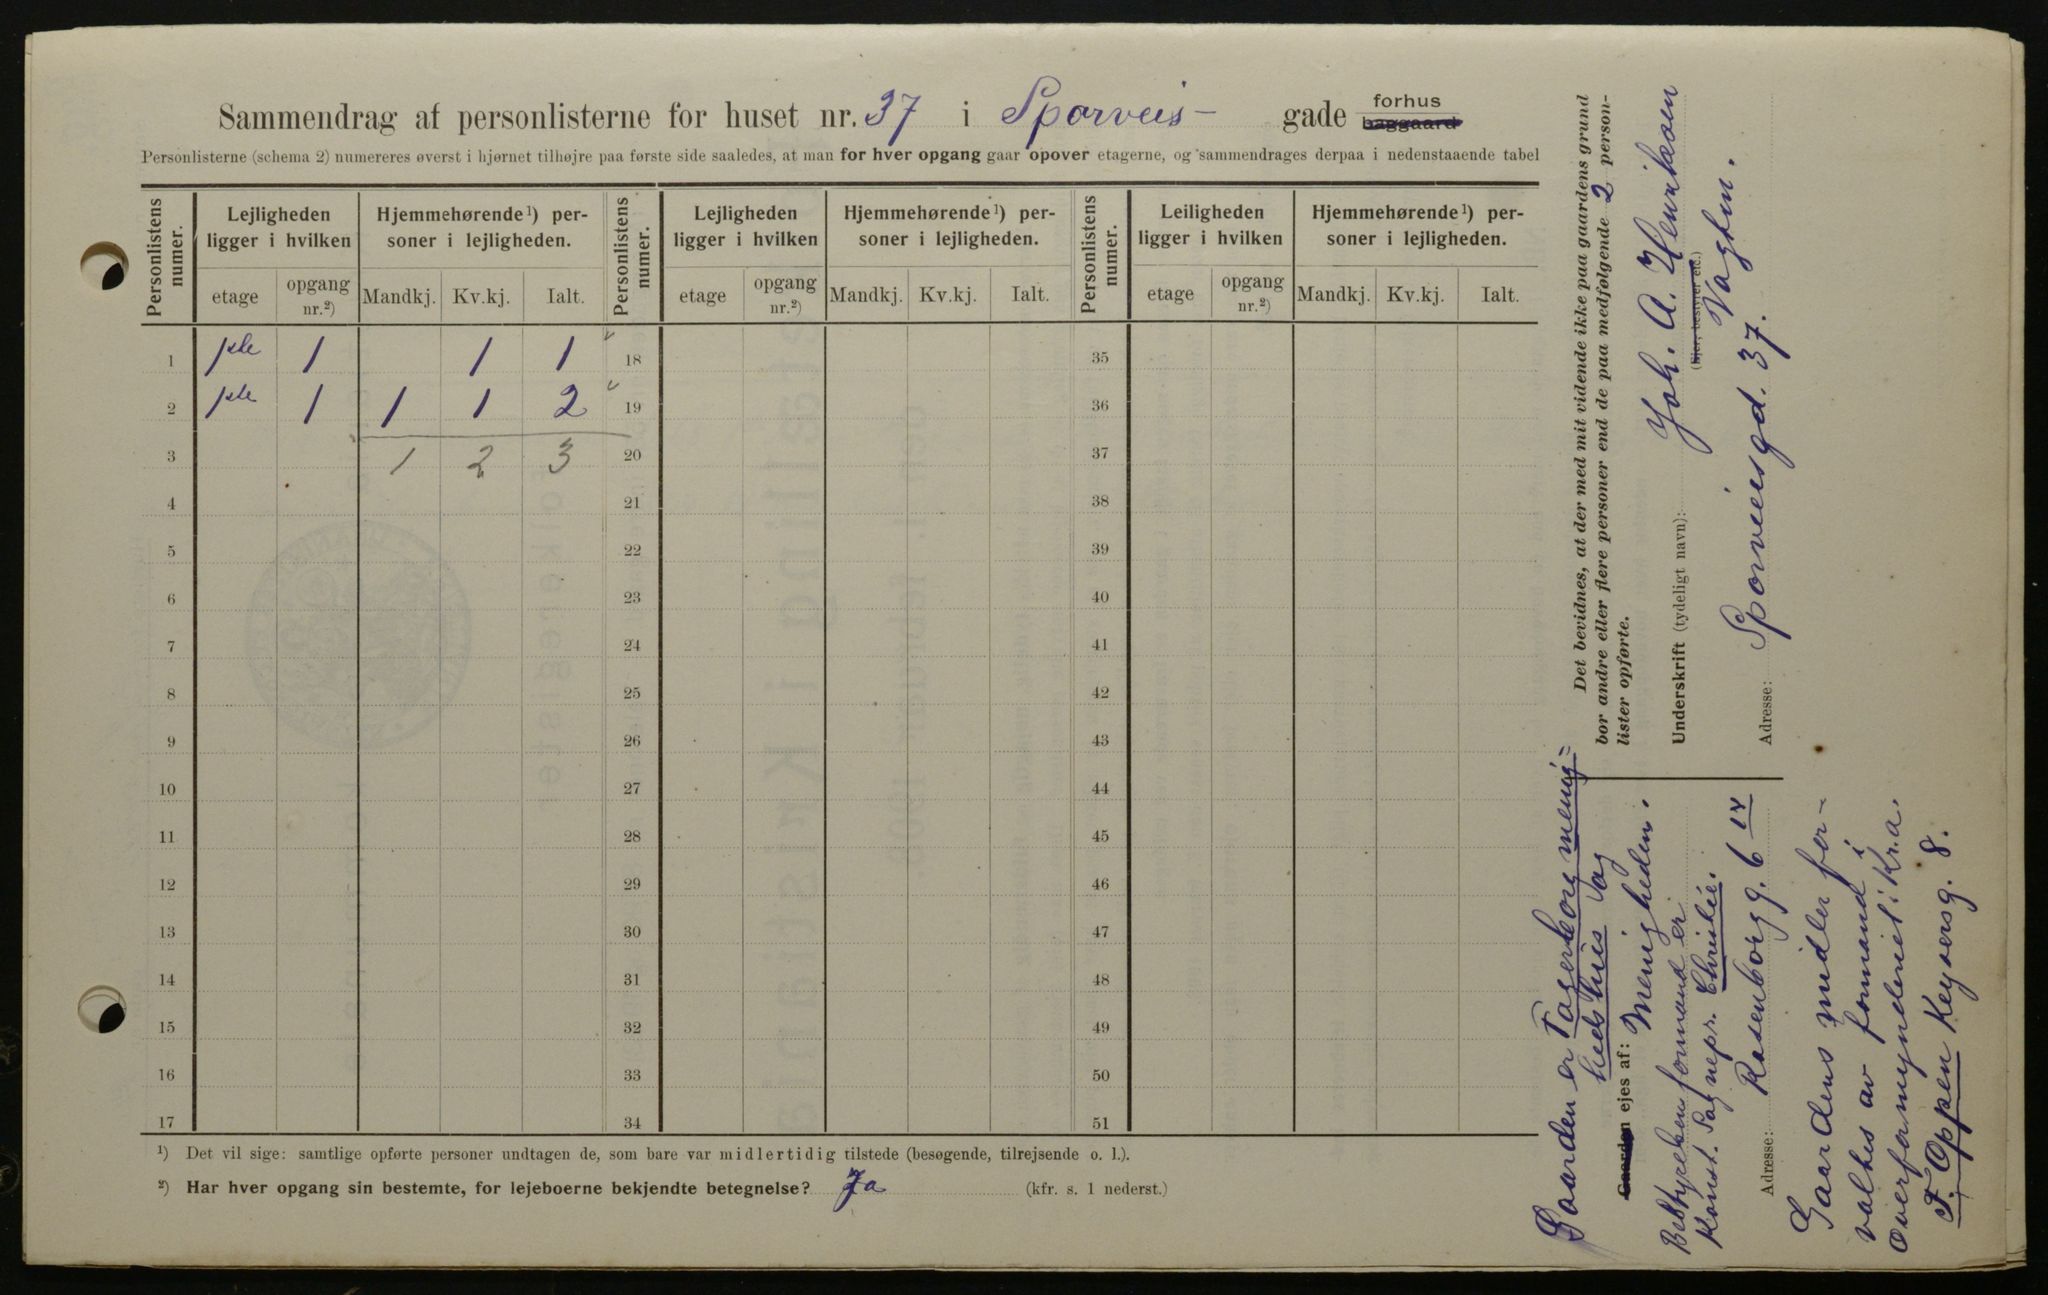 Sammendrag af personlisterne for huset nr. 37 i Sporveis- gade forhus
baggaard
Personlisterne (schema 2) numereres øverst i hjørnet tilhøjre paa første side saaledes, at man for hver opgang gaar opover etagerne, og sammendrages derpaa i nedenstaaende tabel
Personlistens numer. Lejligheden ligger i hvilken Hjemmehørende¹) personer i lejligheden. Personlistens numer. Lejligheden ligger i hvilken Hjemmehørende¹) personer i lejligheden. Personlistens numer. Leiligheden ligger i hvilken Hjemmehørende¹) personer i lejligheden.
etage opgang nr.²) Mandkj. Kv.kj. Ialt. etage opgang nr.²) Mandkj. Kv.kj. Ialt. etage opgang nr.²) Mandkj. Kv.kj. Ialt.
1 1ste 1 1 1 18 35
2 1ste 1 1 1 2 19 36
3 1 2 3 20 37
4 21 38
5 22 39
6 23 40
7 24 41
8 25 42
9 26 43
10 27 44
11 28 45
12 29 46
13 30 47
14 31 48
15 32 49
16 33 50
17 34 51
¹) Det vil sige: samtlige opførte personer undtagen de, som bare var midlertidig tilstede (besøgende, tilrejsende o. l.).
²) Har hver opgang sin bestemte, for lejeboerne bekjendte betegnelse? Ja (kfr. s. 1 nederst.)
Det bevidnes, at der med mit vidende ikke paa gaardens grund
bor andre eller flere personer end de paa medfølgende 2 person-
lister opførte.
Underskrift (tydeligt navn): Joh. A. Henriksen
(Ejer, bestyrer etc.)
Vagtm.
Adresse: Sporveisgd. 37.
Gaarden er Fagerborg menig-
heds hus og
Gaarden ejes af: Menigheden.
Bestyrelsen formand er
Konst. Sognepr. Christie.
Adresse: Rosenborg g. 6 IV
Gaardens midler for-
valtes av formand i
Overformynderiet i Kr.a.
F. Oppen Keysersg. 8.